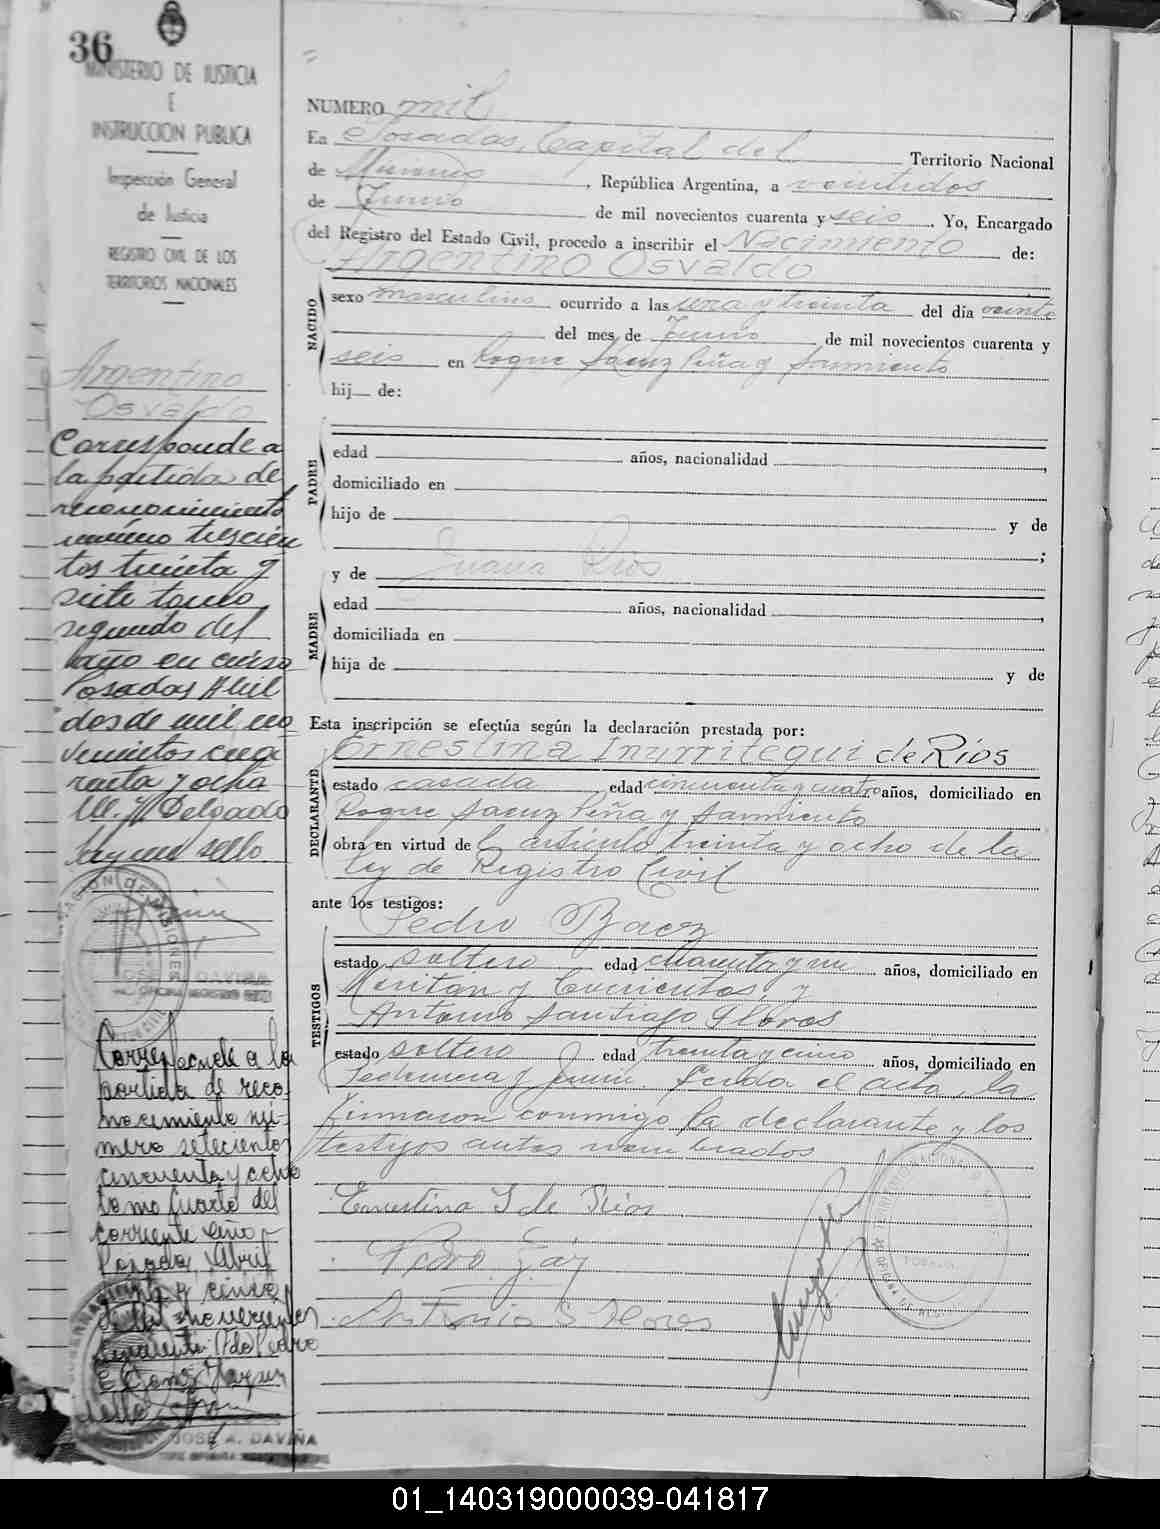 36
MINISTERIO DE JUSTICIA
E
INSTRUCCION PUBLICA
Inspección General
de Justicia
REGISTRO CIVIL DE LOS
TERRITORIOS NACIONALES
Argentino
Osvaldo
Corresponde a
la partida de
reconocimiento
número trescien
tos treinta y
siete tomo
segundo del
año en curso
Posadas Abril
dos de mil no
vecientos cua
renta y ocho
M. J. Delgado
hay un sello
JOSE A. DAVIÑA
Corresponde a la
partida de reco-
nocimiento nú-
mero setecientos
cincuenta y ocho
tomo cuarto del
corriente año
Posadas, Abril
JOSÉ A. DAVIÑA
NUMERO mil
En Posadas, Capital del Territorio Nacional
de Misiones, República Argentina, a veintidos
de Junio de mil novecientos cuarenta y seis. Yo, Encargado
del Registro del Estado Civil, procedo a inscribir el Nacimiento de:
Argentino Osvaldo
NACIDO
sexo masculino ocurrido a las una y treinta del día veinte
del mes de Junio de mil novecientos cuarenta y
seis en Roque Saenz Peña y Sarmiento
hij de:
PADRE
edad años, nacionalidad ,
domiciliado en
hijo de y de
;
y de Juana Rios
MADRE
edad años, nacionalidad ,
domiciliada en
hija de y de
Esta inscripción se efectúa según la declaración prestada por:
Ernestina Inurritegui de Ríos
DECLARANTE
estado casada edad cincuenta y cuatro años, domiciliado en
Roque Saenz Peña y Sarmiento
obra en virtud del artículo treinta y ocho de la
ley de Registro Civil
ante los testigos:
Pedro Baez
TESTIGOS
estado soltero edad cuarenta y un años, domiciliado en
Maritan y Corrientes, y
Antonio Santiago Flores
estado soltero edad treinta y cinco años, domiciliado en
y Junin. Leida el acta, la
firmaron conmigo la declarante y los
testigos antes nombrados
Ernestina I de Rios
Pedro
Antonio S Flores
01_140319000039-041817